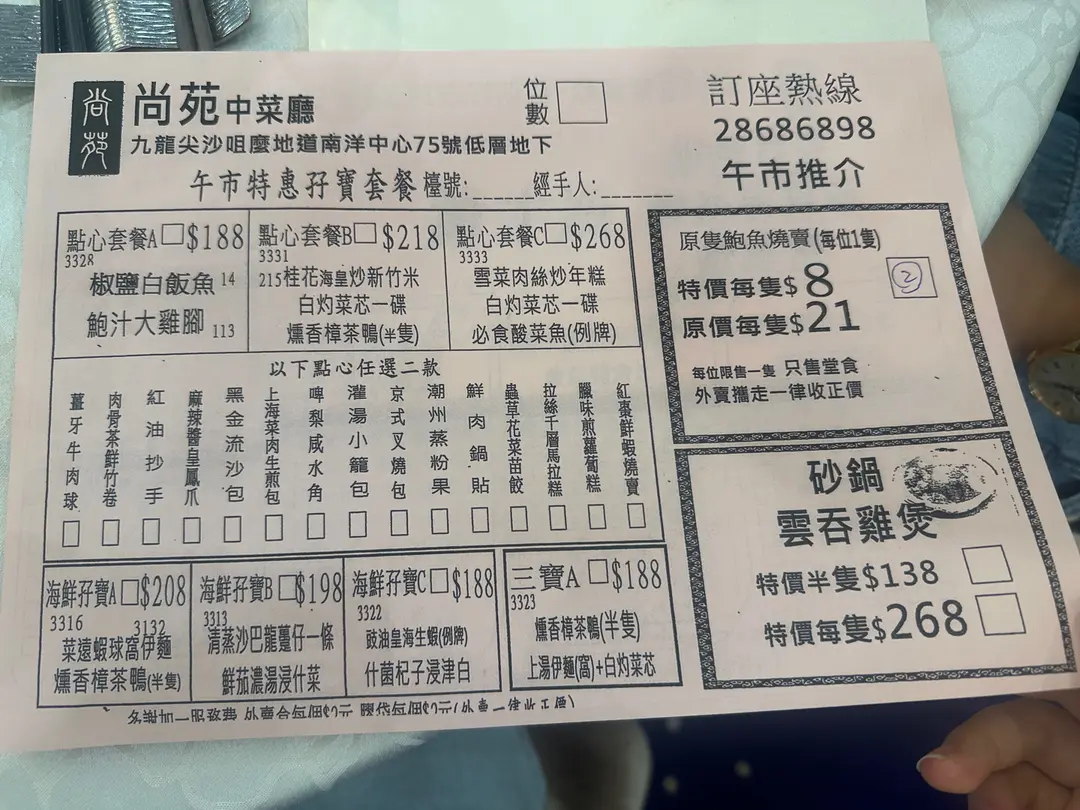 尚苑
尚苑中菜廳
九龍尖沙咀麼地道南洋中心75號低層地下
位數
訂座熱線
28686898
午市推介
午市特惠孖寶套餐 檯號:______經手人:_______
點心套餐A □$188
3328
椒鹽白飯魚 14
鮑汁大雞腳 113
點心套餐B□$218
3331
215桂花海皇炒新竹米
白灼菜芯一碟
燻香樟茶鴨(半隻)
點心套餐C□$268
3333
雪菜肉絲炒年糕
白灼菜芯一碟
必食酸菜魚(例牌)
以下點心任選二款
薑牙牛肉球 □
肉骨茶鮮竹卷 □
紅油抄手 □
麻辣醬皇鳳爪 □
黑金流沙包 □
上海菜肉生煎包 □
啤梨咸水角 □
灌湯小籠包 □
京式叉燒包 □
潮州蒸粉果 □
鮮肉鍋貼 □
蟲草花菜苗餃 □
拉絲千層馬拉糕 □
臘味煎蘿蔔糕 □
紅棗鮮蝦燒賣 □
海鮮孖寶A□$208
3316 3132
菜遠蝦球窩伊麵
燻香樟茶鴨(半隻)
海鮮孖寶B □$198
3313
清蒸沙巴龍躉仔一條
鮮茄濃湯浸什菜
海鮮孖寶C□$188
3322
豉油皇海生蝦(例牌)
什菌杞子浸津白
三寶A □$188
3323
燻香樟茶鴨(半隻)
上湯伊麵(窩)+白灼菜芯
原隻鮑魚燒賣(每位1隻)
特價每隻$8
②
原價每隻$21
每位限售一隻 只售堂食
外賣攜走一律收正價
砂鍋
雲吞雞煲
特價半隻$138
特價每隻$268
多謝加一服務費 外賣盒每個$2元 膠袋每個$2元(外賣一律收正價)